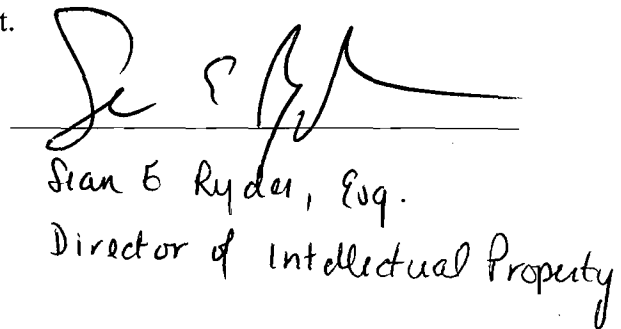 t.
Sean E Ryder, Esq.
Director of Intellectual Property